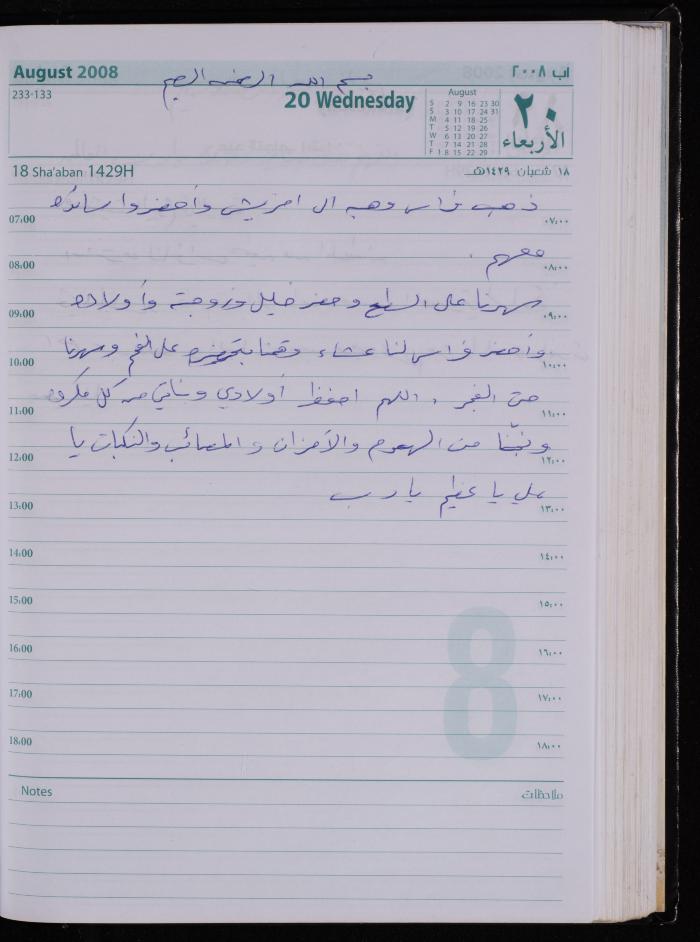 August 2008
آب ٢٠٠٨
بسم الله الرحمن الرحيم
233-133
20 Wednesday
August
S 2 9 16 23 30
S 3 10 17 24 31
M 4 11 18 25
T 5 12 19 26
W 6 13 20 27
T 7 14 21 28
F 1 8 15 22 29
٢٠
الأربعاء
18 Sha'aban 1429H
١٨ شعبان ١٤٢٩هـ
ذهب فراس وهبه الى وأحضروا
07:00 ٠٧:٠٠
معهم .
08:00 ٠٨:٠٠
سهرنا على السطح وحضر خليل وزوجته وأولاده
09:00 ٠٩:٠٠
وأحضر فراس لنا عشاء وقمنا بتحضيره على الفحم وسهرنا
10:00 ١٠:٠٠
حتى الفجر . اللهم احفظ أولادي وبناتي من كل مكروه
11:00 ١١:٠٠
ونجّنا من الهموم والأحزان و المصائب والنكبات يا
12:00 ١٢:٠٠
علي يا عظيم يا رب
13:00 ١٣:٠٠
14:00 ١٤:٠٠
15:00 ١٥:٠٠
16:00 ١٦:٠٠
17:00 ١٧:٠٠
18:00 ١٨:٠٠
8
Notes ملاحظات